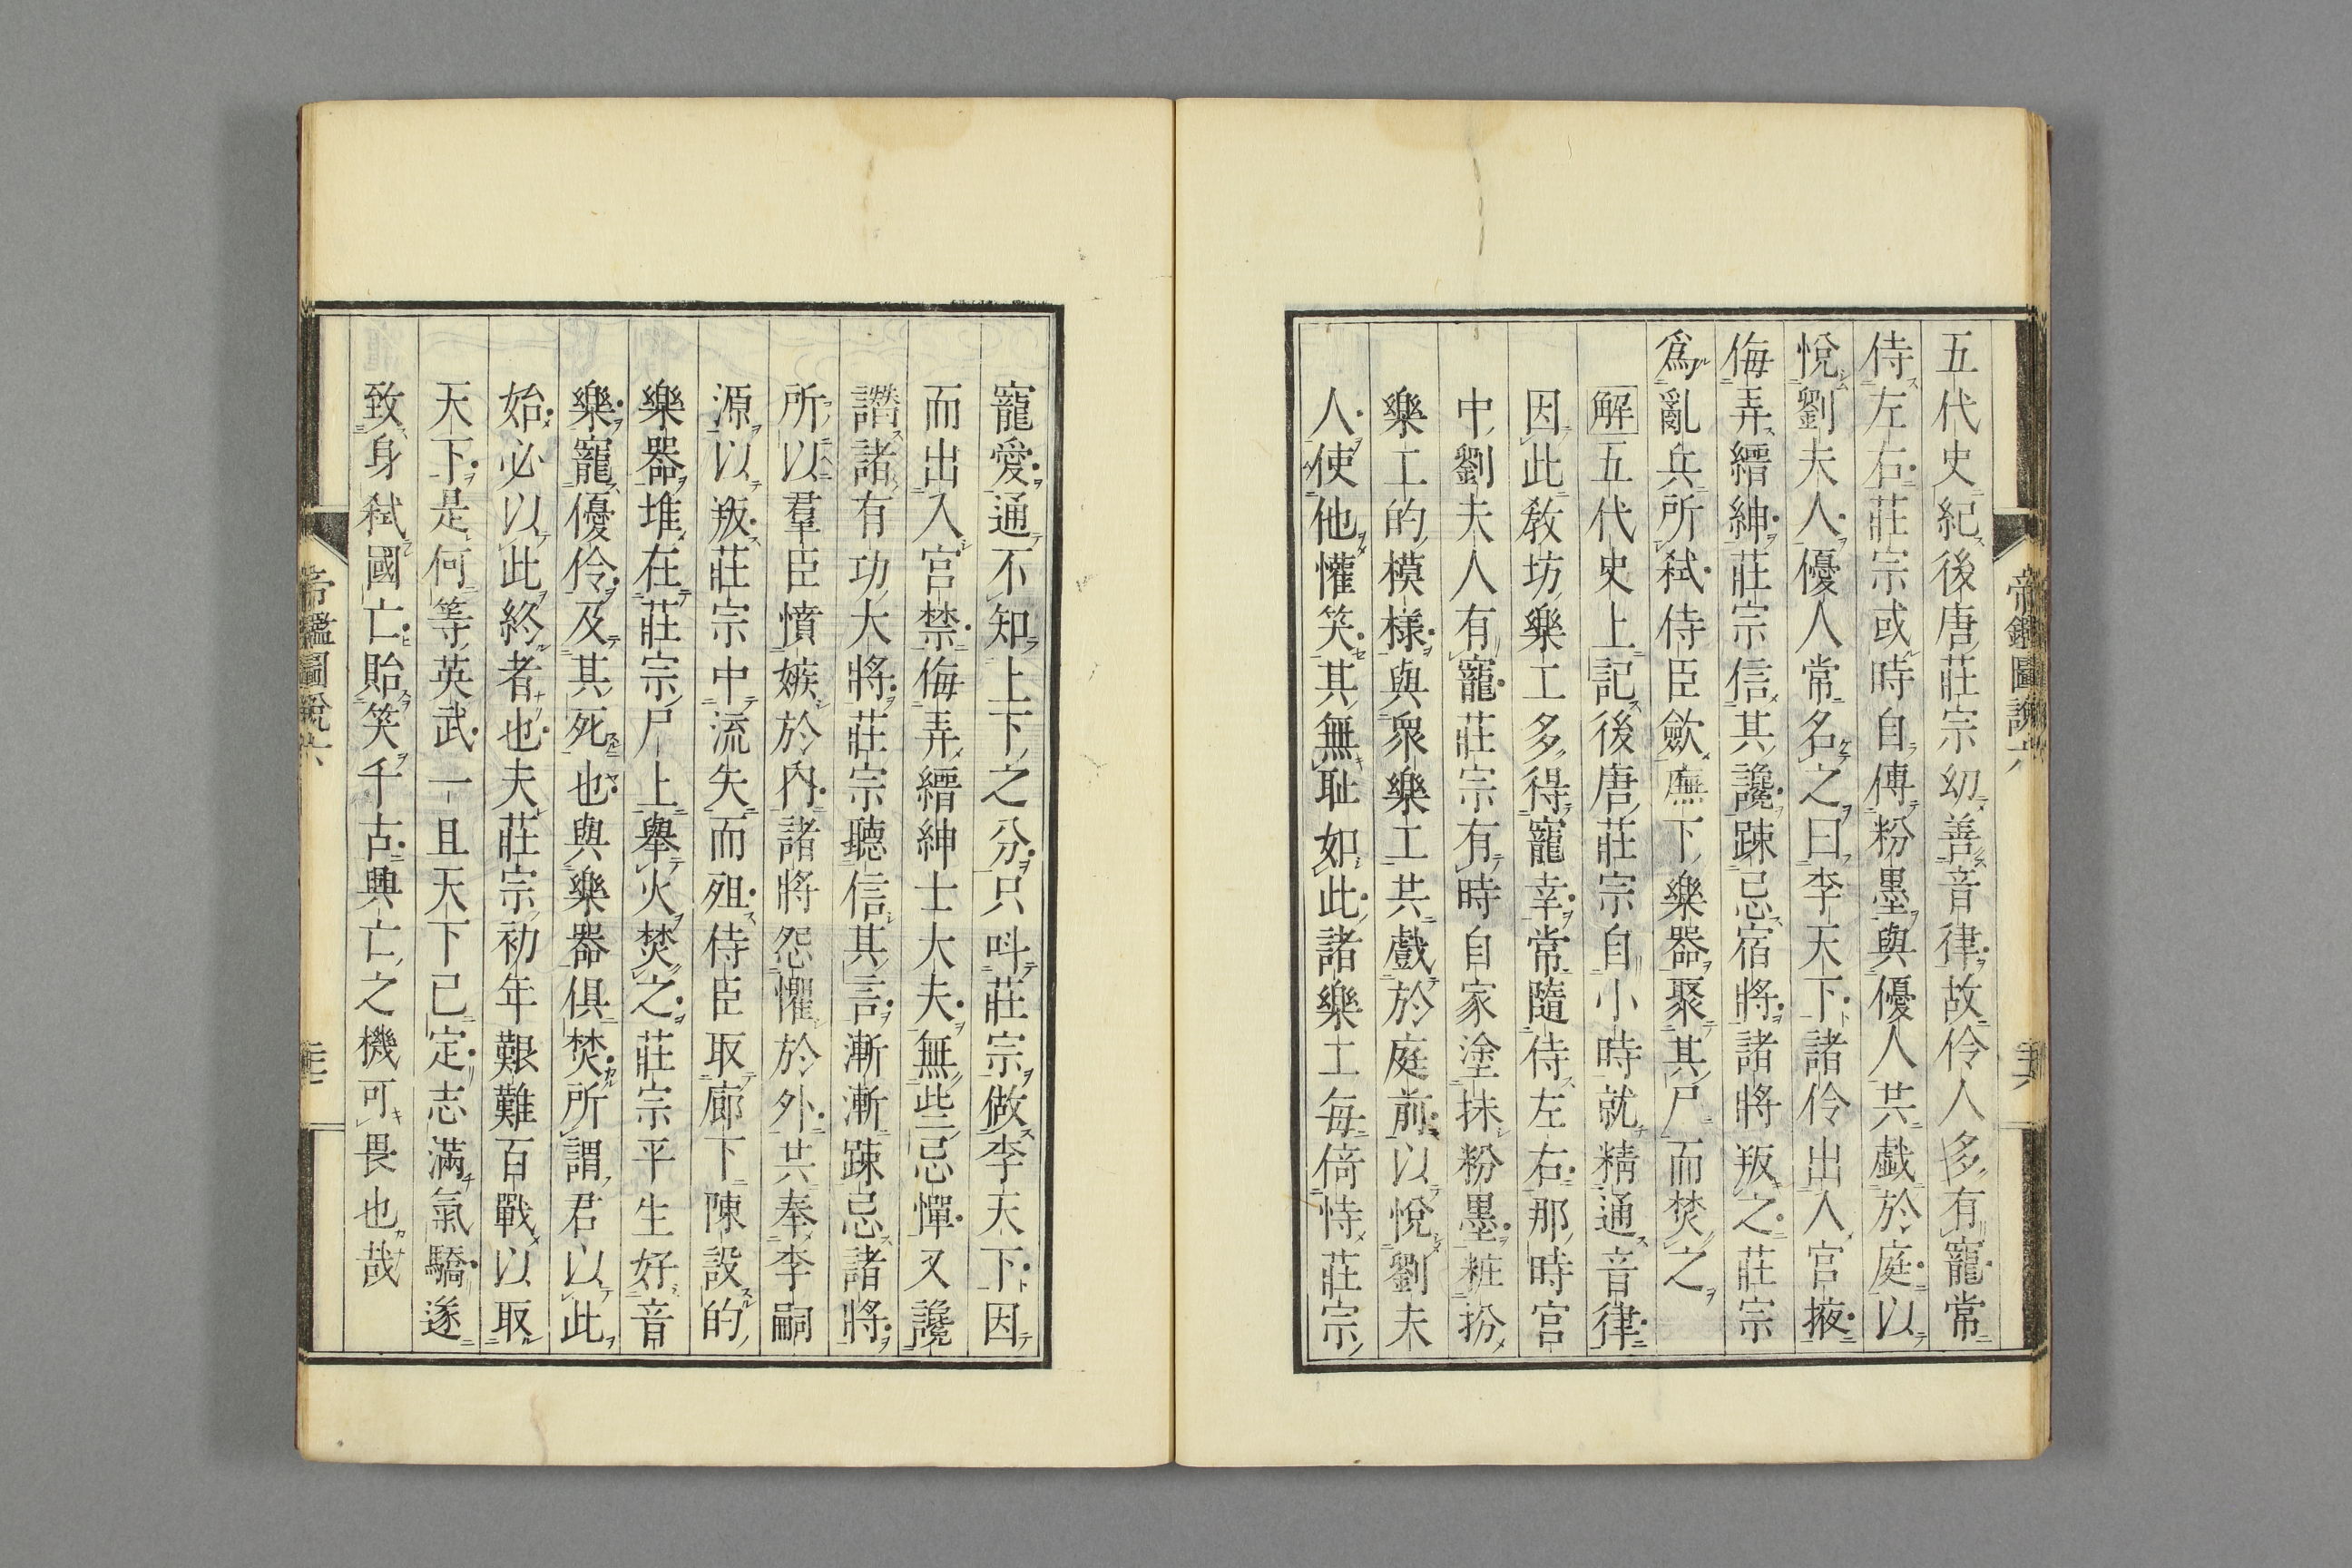 五代史紀後唐莊宗幼善音律故伶人多有寵常
侍左右莊宗或時自傅粉墨與優人共戯於庭以
悅劉夫人優人常名之曰李天下諸伶出入宮掖
侮弄縉紳莊宗信其讒踈忌宿將諸將叛之莊宗
爲亂兵所弑侍臣歛廡下樂器聚其尸而焚之
解五代史上記後唐莊宗自小時就精通音律
因此敎坊樂工多得寵幸常隨侍左右那時宮
中劉夫人有寵莊宗有時自家塗抹粉墨粧扮
樂工的模樣與衆樂工共戲於庭前以悅劉夫
人使他懽笑其無耻如此諸樂工每倚恃莊宗
寵愛通不知上下之分只呌莊宗做李天下因
而出入宮禁侮弄縉紳士大夫無些忌憚又讒
譖諸有功大將莊宗聽信其言漸漸踈忌諸將
所以羣臣憤嫉於內諸將怨懼於外共奉李嗣
源以叛莊宗中流矢而殂侍臣取廊下陳設的
樂器堆在莊宗尸上舉火焚之莊宗平生好音
樂寵優伶及其死也與樂器俱焚所謂君以此
始必以此終者也夫莊宗初年艱難百戰以取
天下是何等英武一旦天下已定志滿氣驕遂
致身弑國亡貽笑千古興亡之機可畏也哉